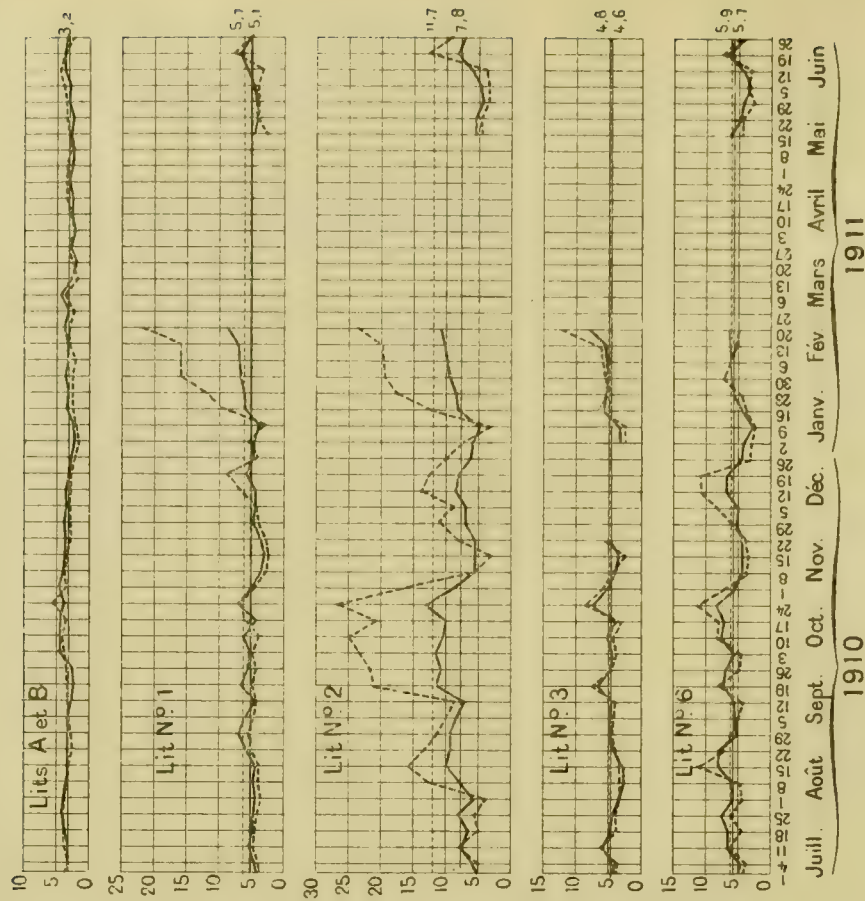 Lits A et B
10
5
0
3,2
Lit Nº 1
25
20
15
10
5
0
5,7
5,1
Lit Nº 2
30
25
20
15
10
5
0
11,7
7,8
Lit Nº 3
15
10
5
0
4,8
4,6
Lit Nº 6
15
10
5
0
5,9
5,7
4 11 18 25 1 8 15 22 29 5 12 19 26 3 10 17 24 1 8 15 22 29 5 12 19 26 2 9 16 23 30 6 13 20 27 6 13 20 27 3 10 17 24 1 8 15 22 29 5 12 19 26
Juill. Août Sept. Oct. Nov. Déc. Janv. Fév Mars Avril Mai Juin
1910 1911